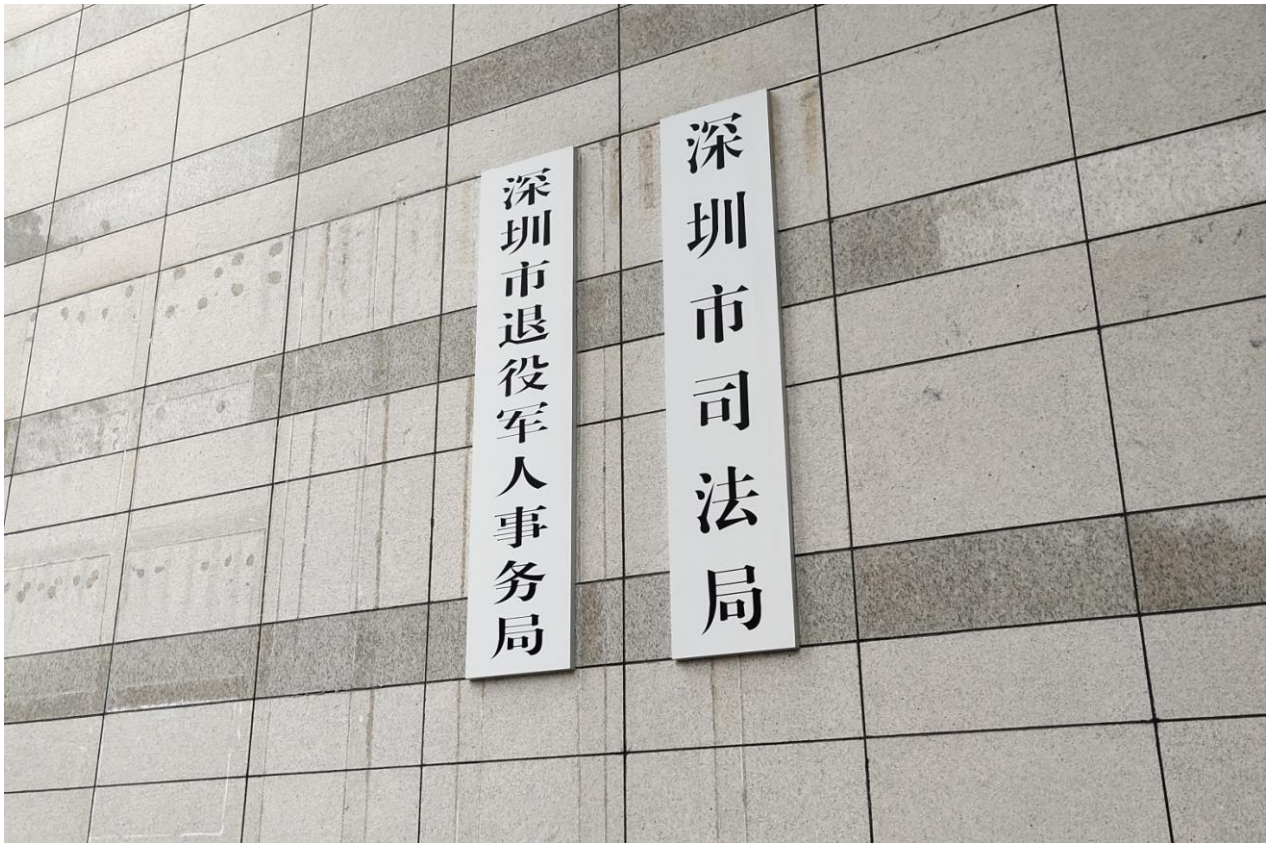 深圳市退役军人事务局
深圳市司法局